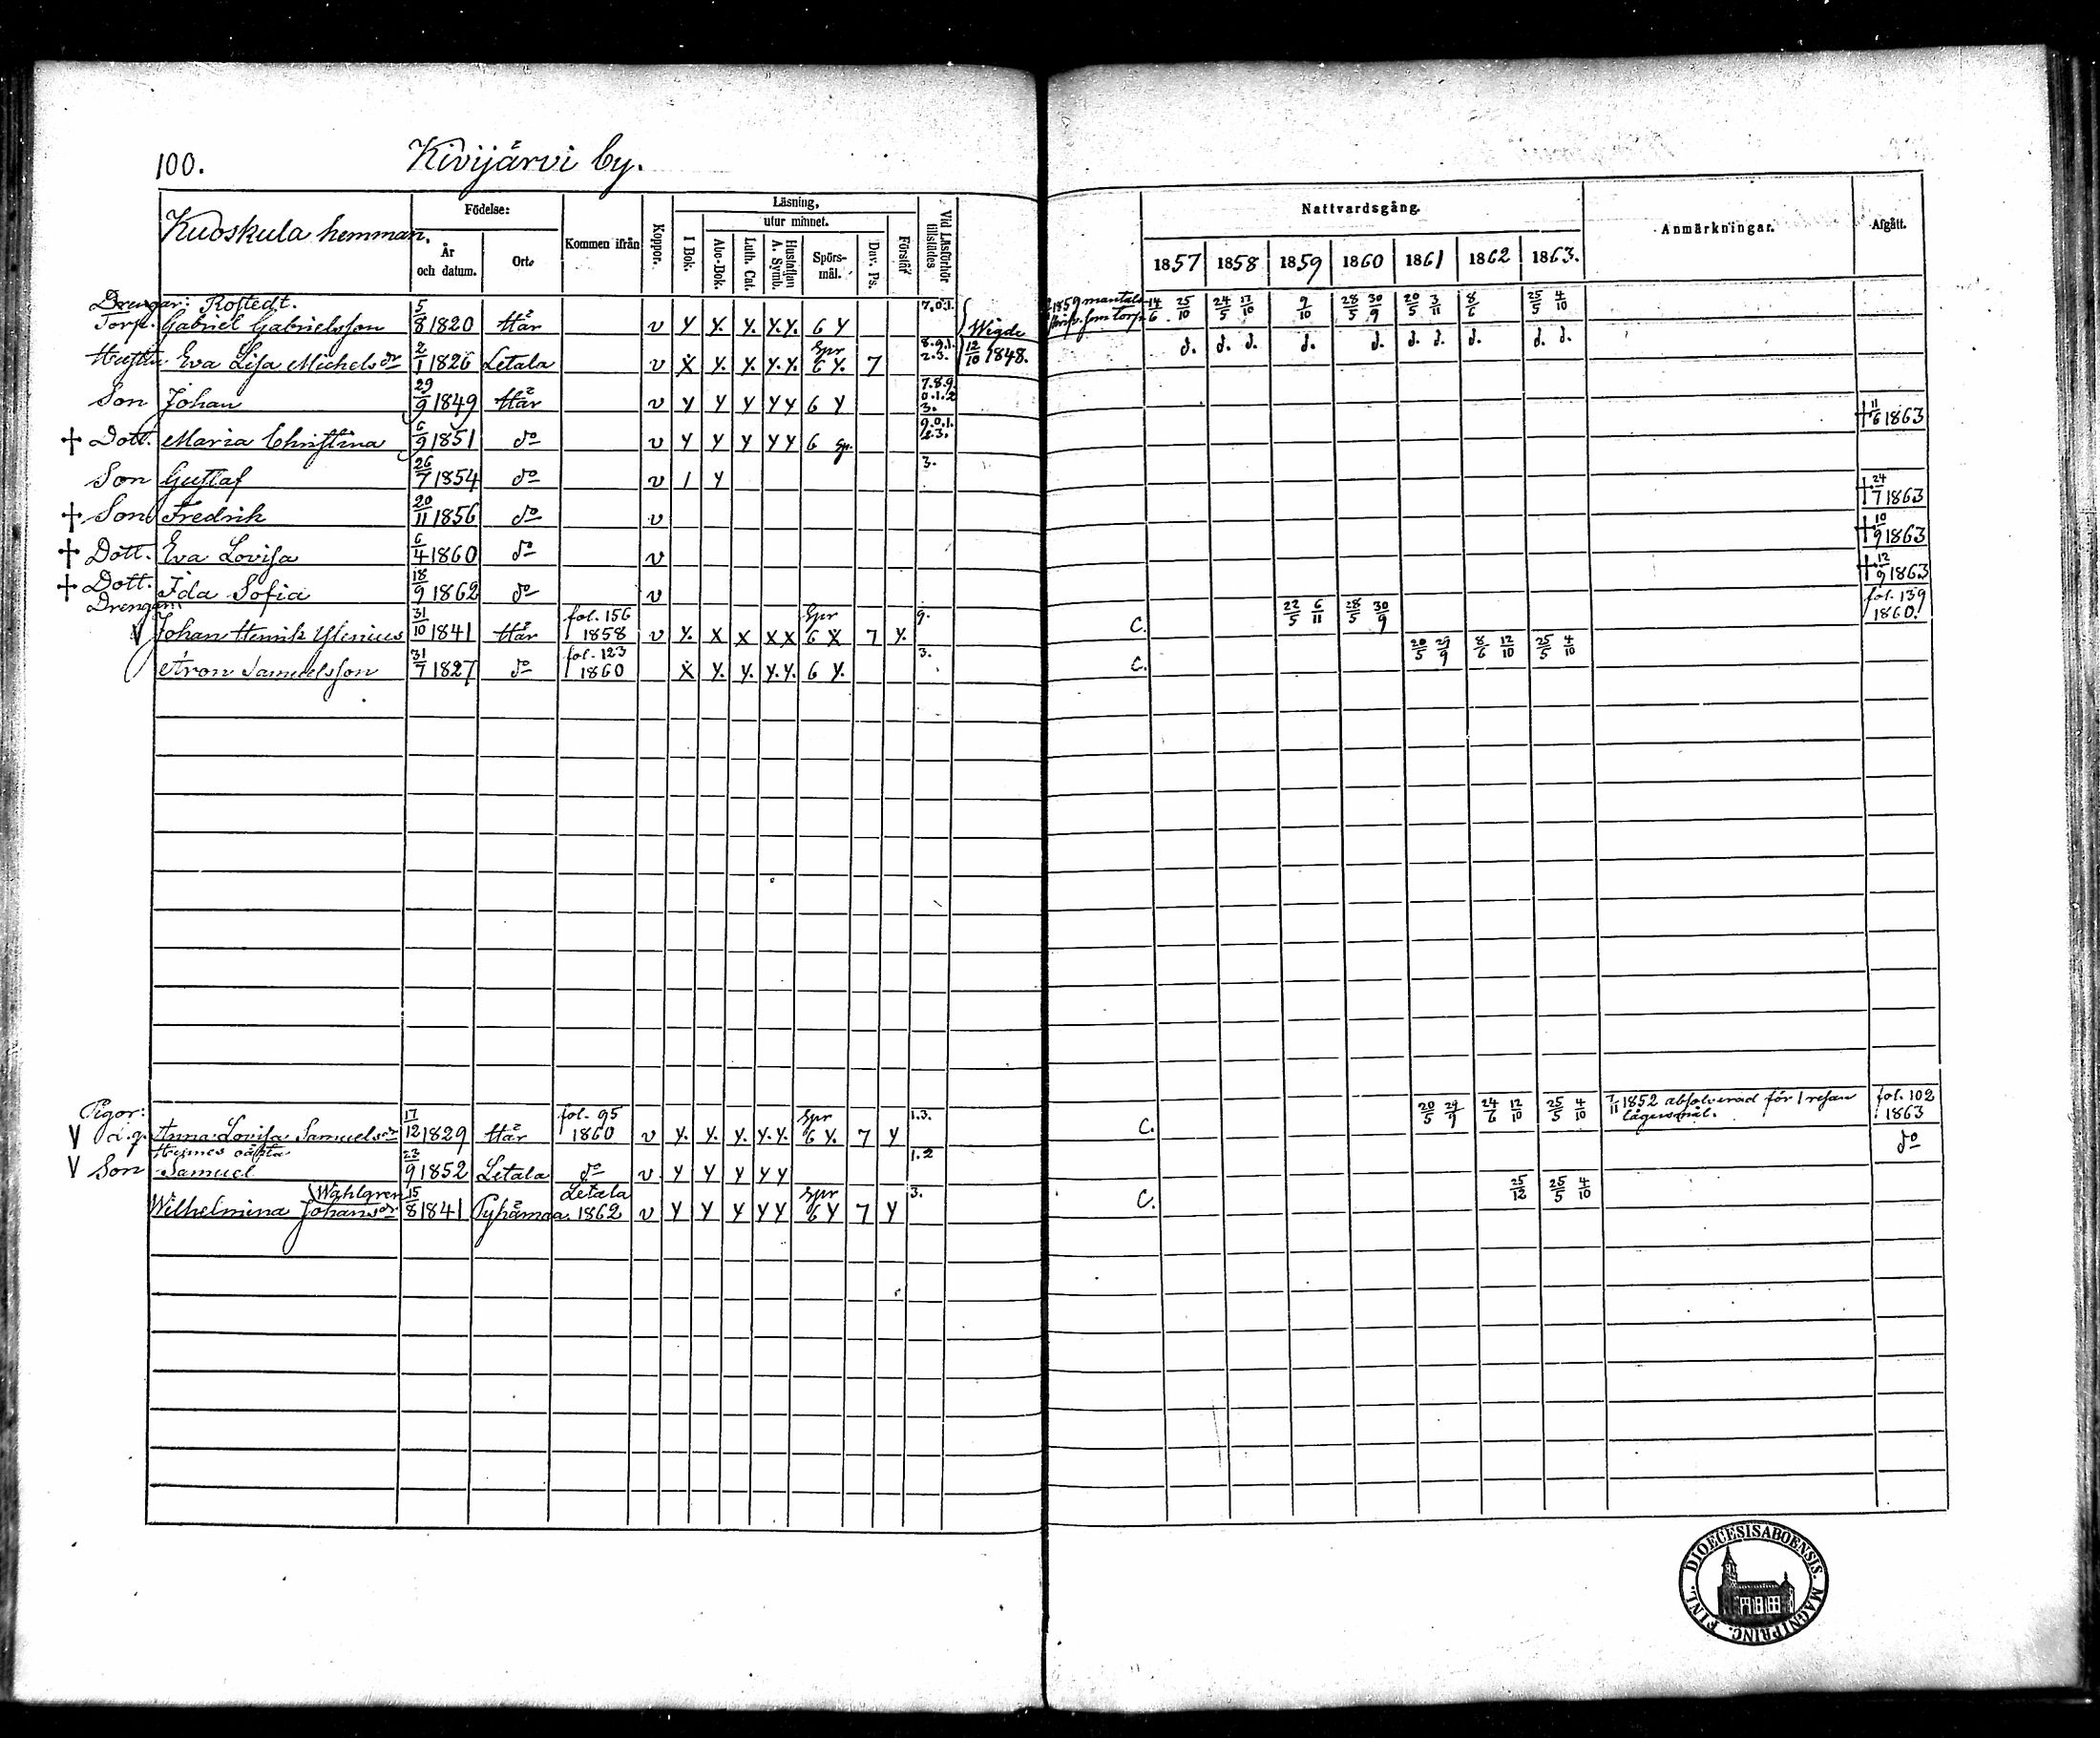 100. Kivijärvi by.
Kuoskula hemman.
Födelse:
År och datum.
Ort.
Kommen ifrån
Koppor.
Läsning,
utur minnet.
I Bok.
Abc-Bok.
Luth. Cat.
Hustaflan A. Symb.
Spörs-mål.
Dav. Ps.
Förstår
Vid Läsförhör tillstädes
Nattvardsgång.
1857 1858 1859 1860 1861 1862 1863.
Anmärkningar.
Afgått.
Drengar: Rostedt. 7.0.1.
Torp. Gabriel Gabrielsson 5/8 1820 Här v Y Y. Y. Y.Y. 6 Y Wigde 1859 mantals skrifv. som torp. 14/6 25/10 24/5 17/10 9/10 28/5 30/9 20/5 3/11 8/6 25/5 4/10
Hustru Eva Lisa Michelsdr 2/1 1826 Letala v X Y. Y. Y.Y. Spr 6 Y. 7 8.9.1. 2.3. 12/10 1848. d. d. d. d. d. d. d. d. d. d.
Son Johan 29/9 1849 Här v Y Y Y Y Y 6 Y 7.8.9. 0.1.2 3.
† Dott. Maria Christina 6/9 1851 do v Y Y Y Y Y 6 Spr. 9.0.1. 2.3. † 11/6 1863
Son Gustaf 26/7 1854 do v 1 Y 3.
† Son Fredrik 20/11 1856 do v † 24/7 1863
† Dott. Eva Lovisa 6/4 1860 do v † 10/9 1863
† Dott. Ida Sofia 18/9 1862 do v † 12/9 1863
Drengar:
V Johan Henrik Ylenius 31/10 1841 Här fol. 156 1858 v Y. X X X X Spr 6 X 7 Y. 9. C. 22/5 6/11 28/5 30/9 fol. 139 1860.
Aron Samuelsson 31/7 1827 do fol. 123 1860 X Y. Y. Y.Y. 6 Y. 3. C. 20/5 29/9 8/6 12/10 25/5 4/10
Pigor:
V Anna Lovisa Samuelsdr 17/12 1829 Här fol. 95 1860 v Y. Y. Y. Y.Y. Spr 6 Y. 7 Y 1.3. C. 20/5 29/9 24/6 12/10 25/5 4/10 7/11 1852 absolverad för 1 resan lägersmål. fol. 102 1863
Hennes oäkta
V Son Samuel 23/9 1852 Letala do v Y Y Y Y Y 1.2 do
Wahlgren
Wilhelmina Johansdr 15/8 1841 Pyhämaa Letala 1862 v Y Y Y Y Y Spr 6 Y 7 Y 3. C. 25/12 25/5 4/10
DIOECESIS ABOENSIS. MAGNI PRINC. FINL.